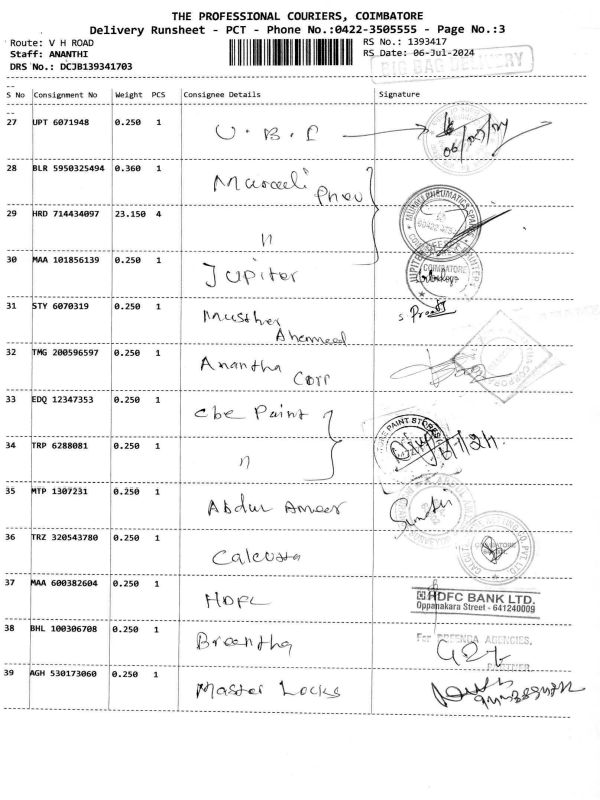 THE PROFESSIONAL COURIERS, COIMBATORE
Delivery Runsheet - PCT - Phone No.:0422-3505555 - Page No.:3
Route: V H ROAD RS No.: 1393417
Staff: ANANTHI RS Date: 06-Jul-2024
DRS No.: DCJB139341703 BIG BAG DELIVERY
S No Consignment No Weight PCS Consignee Details Signature
27 UPT 6071948 0.250 1 U.B.I
28 BLR 5950325494 0.360 1 Murali Pneu
29 HRD 714434097 23.150 4 "
30 MAA 101856139 0.250 1 Jupiter COIMBATORE
31 STY 6070319 0.250 1 Musther Ahemmed
32 TMG 200596597 0.250 1 Anantha Corp
33 EDQ 12347353 0.250 1 Cbe Paint PAINT STORES
34 TRP 6288081 0.250 1 "
35 MTP 1307231 0.250 1 Abdul Ameer
36 TRZ 320543780 0.250 1 Calcutta
37 MAA 600382604 0.250 1 HDFC HDFC BANK LTD.
Oppanakara Street - 641240009
38 BHL 100306708 0.250 1 For AGENCIES,
PARTNER
39 AGH 530173060 0.250 1 Master Locks